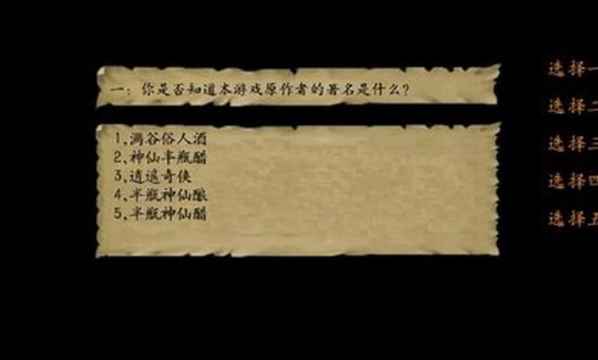 一：你是否知道本游戏原作者的署名是什么？
1、漓谷俗人酒
2、神仙半瓶醋
3、逍遥奇侠
4、半瓶神仙酿
5、半瓶神仙醋
选择一
选择二
选择三
选择四
选择五